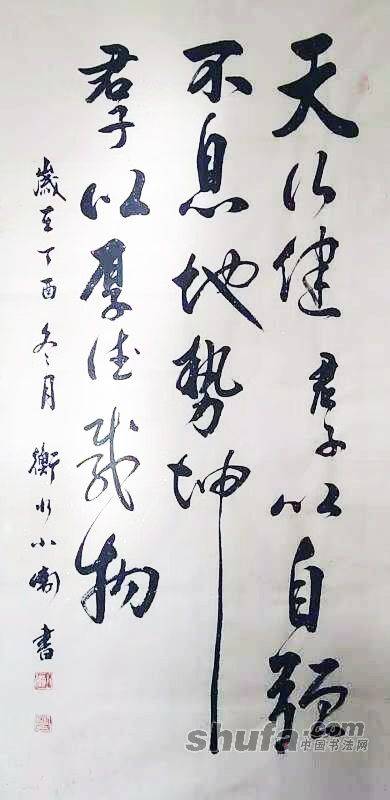 天行健君子以自强
不息地势坤
君子以厚德载物
歲在丁酉冬月衡水小刚書
shufa.com
中国书法网